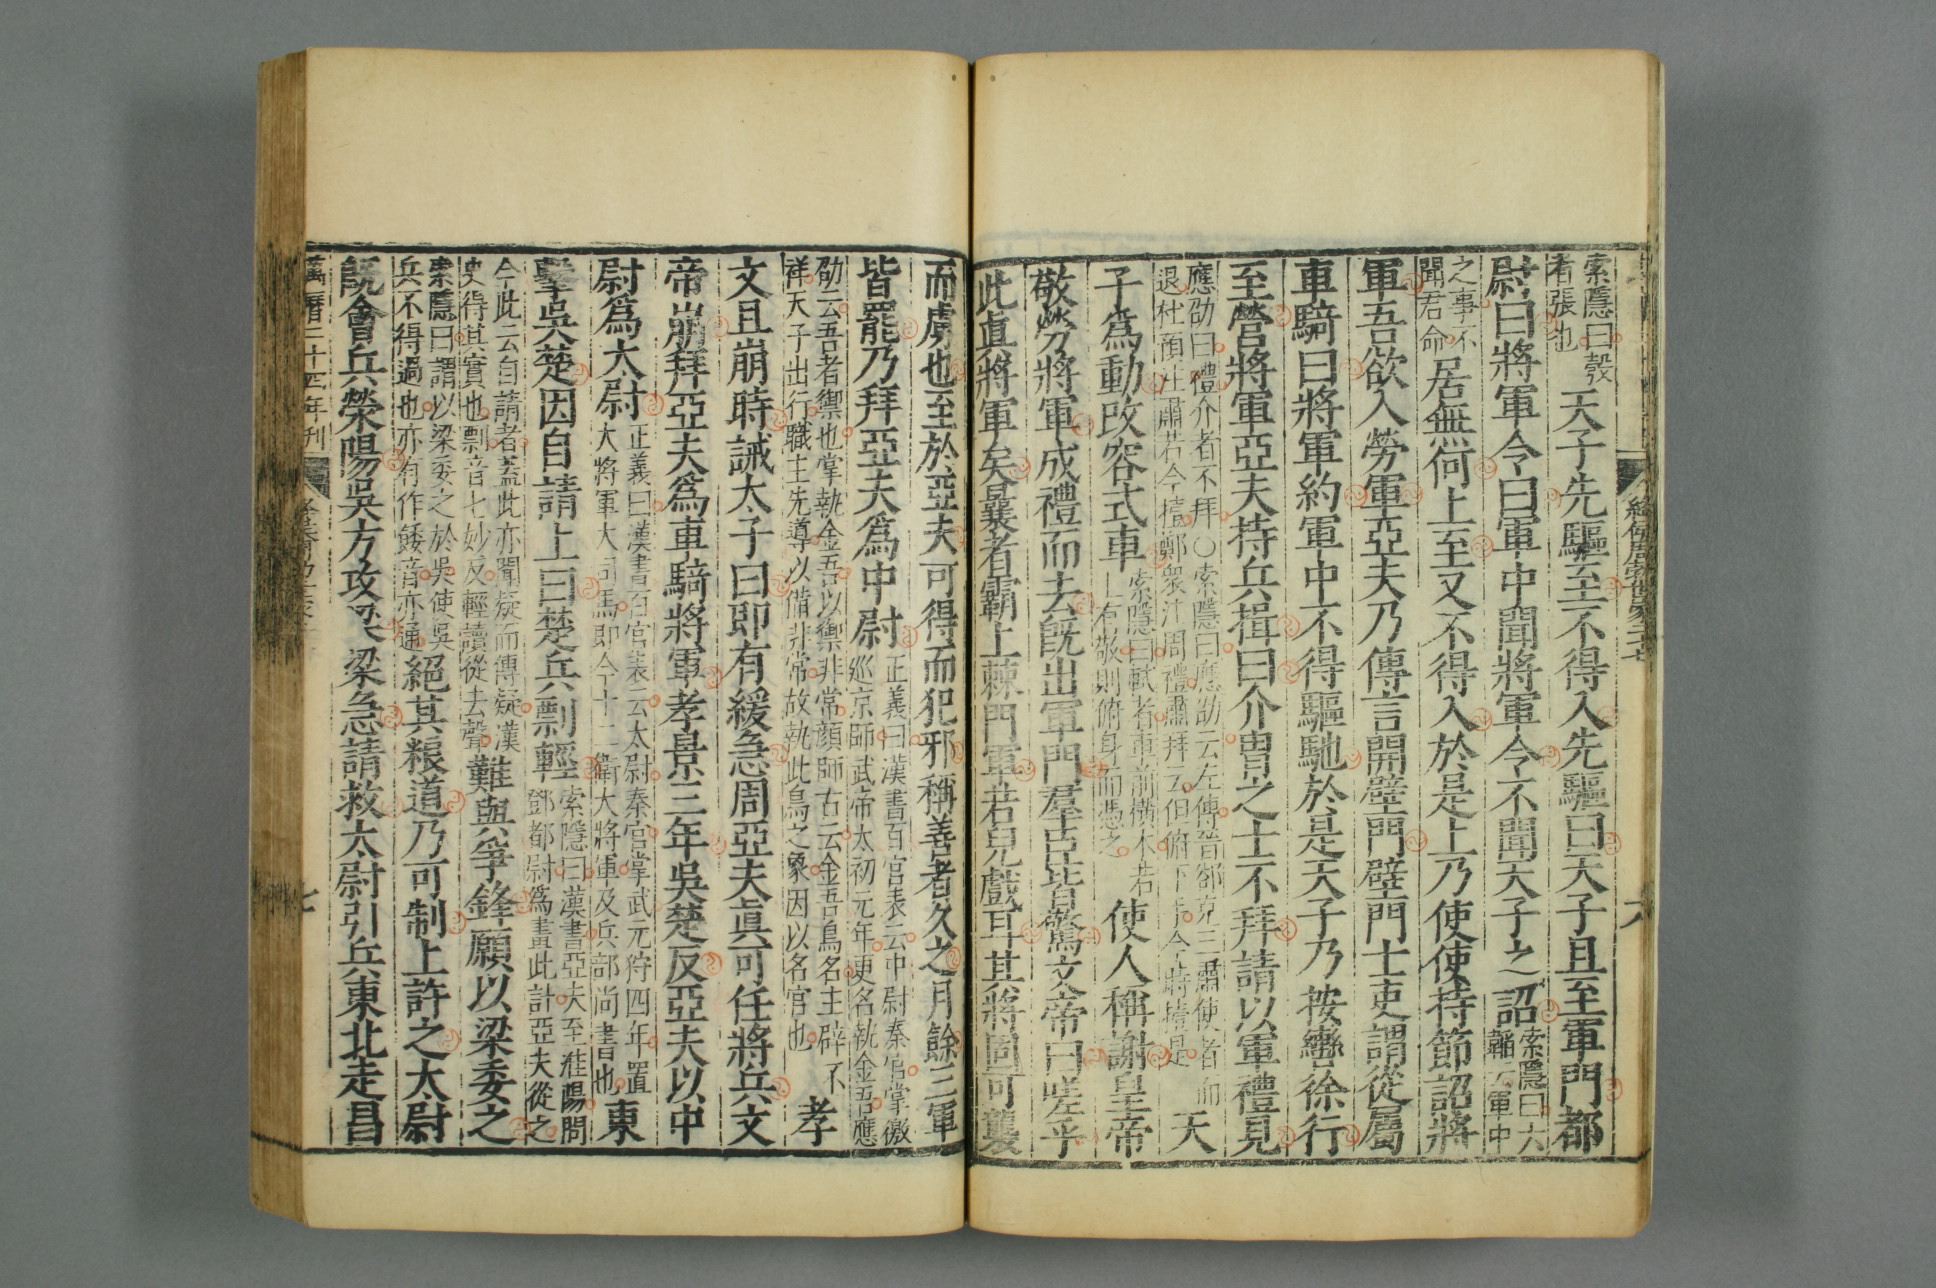 絳侯周勃世家二十七
六
索隱曰彀
者張也
天子先驅至不得入先驅曰天子且至軍門都
尉曰將軍令曰軍中聞將軍令不聞天子之詔
索隱曰六
韜云軍中
之事不
聞君命
居無何上至又不得入於是上乃使使持節詔將
軍吾欲入勞軍亞夫乃傳言開壁門壁門士吏謂從屬
車騎曰將軍約軍中不得驅馳於是天子乃按轡徐行
至營將軍亞夫持兵揖曰介冑之士不拜請以軍禮見
應劭曰禮介者不拜○索隱曰應劭云左傳晉郤克三肅使者而
退杜預註肅若今擡鄭衆注周禮肅拜云但俯下手今時擡是
天
子爲動改容式車
索隱曰軾者車前橫木若
上有敬則俯身而憑之
使人稱謝皇帝
敬勞將軍成禮而去旣出軍門羣臣皆驚文帝曰嗟乎
此眞將軍矣曩者霸上棘門軍若兒戲耳其將固可襲
而虜也至於亞夫可得而犯邪稱善者久之月餘三軍
皆罷乃拜亞夫爲中尉
正義曰漢書百官表云中尉秦官掌徼
巡京師武帝太初元年更名執金吾應
劭云吾者禦也掌執金吾以禦非常顏師古云金吾鳥名主辟不
祥天子出行職主先導以備非常故執此鳥之象因以名官也
孝
文且崩時誡太子曰即有緩急周亞夫眞可任將兵文
帝崩拜亞夫爲車騎將軍孝景三年吳楚反亞夫以中
尉爲太尉
正義曰漢書百官表云太尉秦官掌武元狩四年置
大將軍大司馬即今十二衛大將軍及兵部尚書也
東
擊吳楚因自請上曰楚兵剽輕
索隱曰漢書亞夫至淮陽問
鄧都尉爲畫此計亞夫從之
今此云自請者蓋此亦聞疑而傳疑漢
史得其實也剽音七妙反輕讀從去聲
難與爭鋒願以梁委之
索隱曰謂以梁委之於吳使吳
兵不得過也亦有作餧音亦通
絕其糧道乃可制上許之太尉
旣會兵滎陽吳方攻梁梁急請救太尉引兵東北走昌
萬曆二十四年刊
七